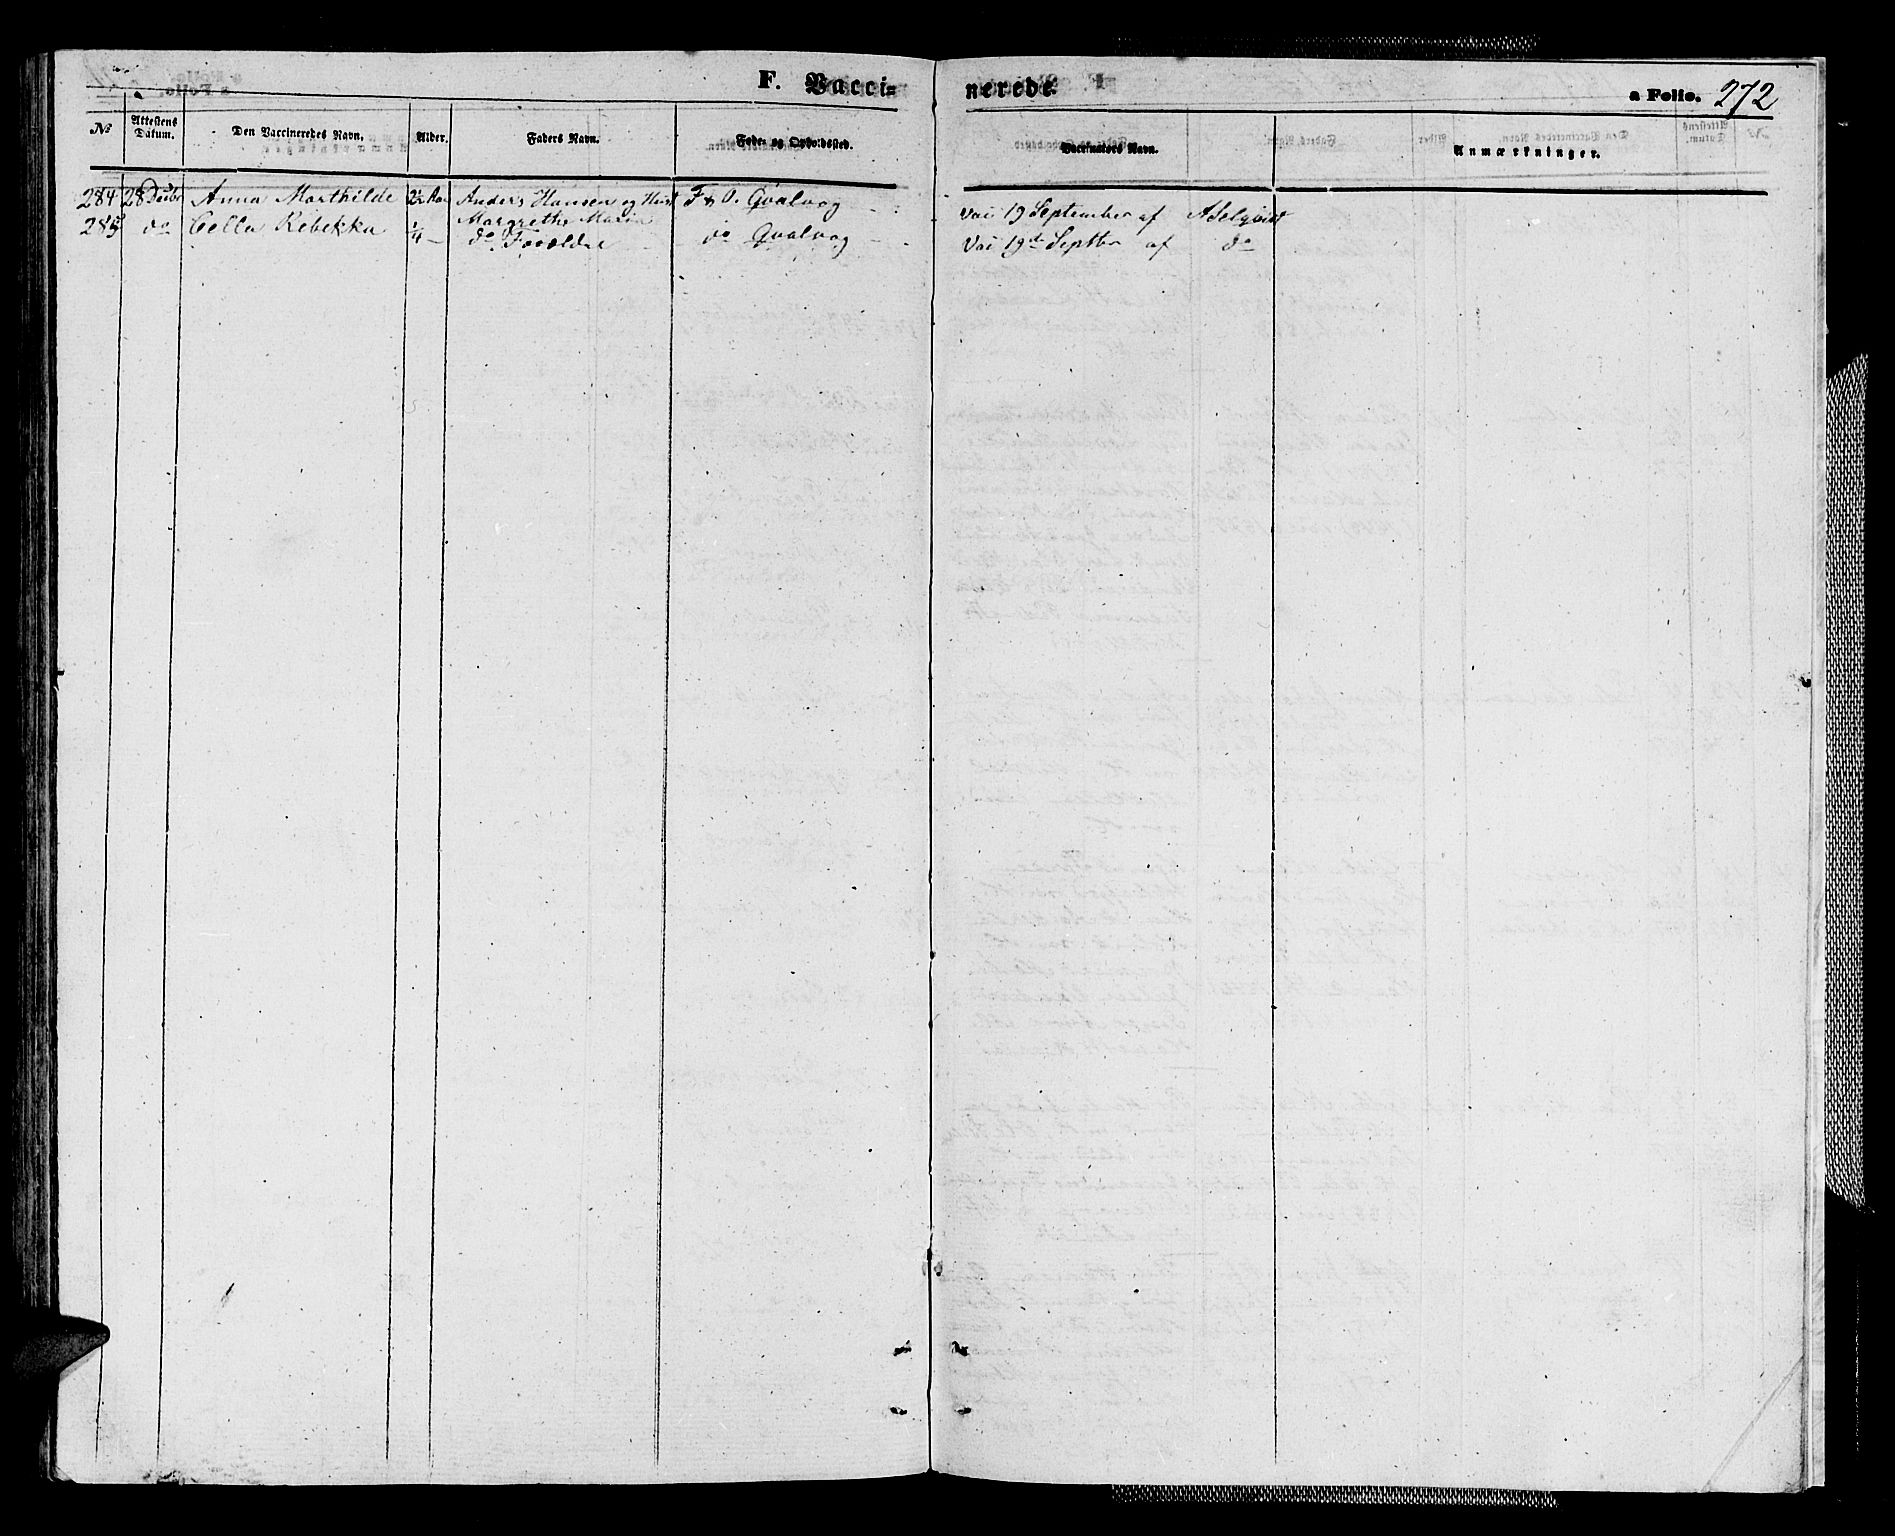 F. Vaccinerede.
a Folio. 272
№ Attestens Datum. Den Vaccineredes Navn. Alder. Faders Navn. Føde- og Opholdssted. Vaccinators Navn. Anmærkninger.
284 28 Decbr Anna Marthilde 2½ Aar Anders Hansen og Hust F & O. Qvalvog Vac 19 September af A Selqvist
Margrethe Maria
285 do Cella Rebekka ¼ — do Forældre do Qvalvog Vac 19de Septbr af do